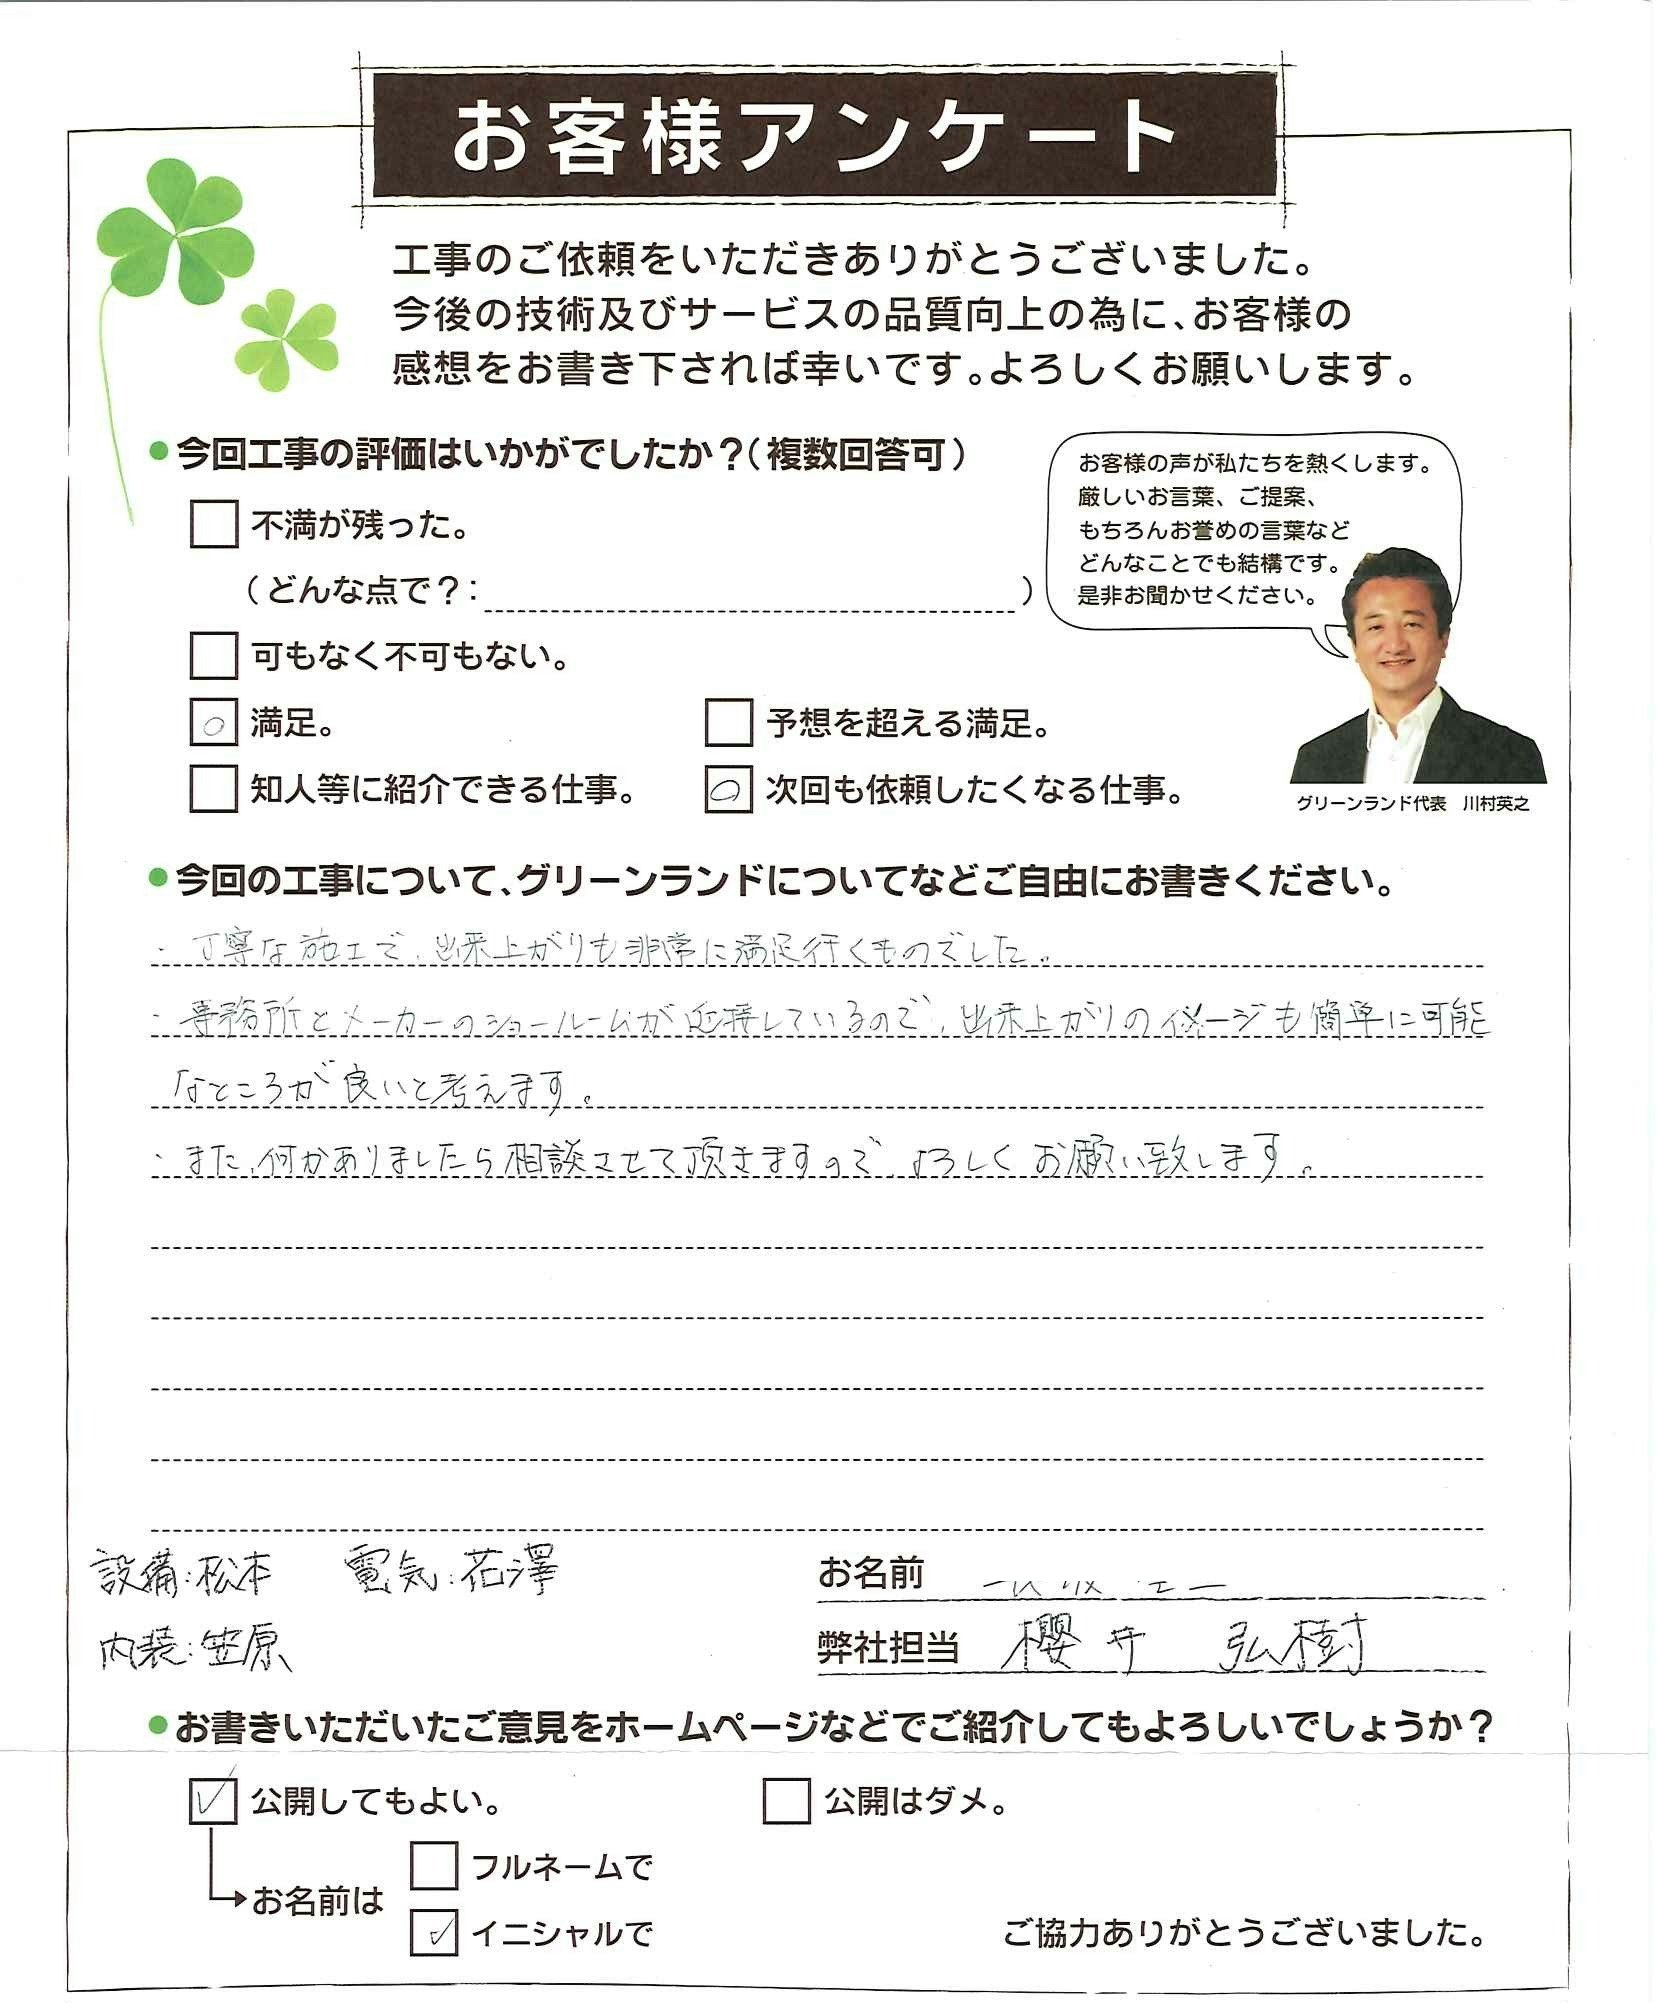 お客様アンケート
工事のご依頼をいただきありがとうございました。
今後の技術及びサービスの品質向上の為に、お客様の
感想をお書き下されれば幸いです。よろしくお願いします。
●今回工事の評価はいかがでしたか？（複数回答可）
お客様の声が私たちを熱くします。
厳しいお言葉、ご提案、
もちろんお誉めの言葉など
どんなことでも結構です。
是非お聞かせください。
不満が残った。
（どんな点で？：）
可もなく不可もない。
○ 満足。
予想を超える満足。
知人等に紹介できる仕事。
○ 次回も依頼したくなる仕事。
グリーンランド代表　川村英之
●今回の工事について、グリーンランドについてなどご自由にお書きください。
・丁寧な施工で、出来上がりも非常に満足行くものでした。
・事務所とメーカーのショールームが近接しているので、出来上がりのイメージも簡単に可能
なところが良いと考えます。
・また、何かありましたら相談させて頂きますので、よろしくお願い致します。
設備：松本　電気：花澤
内装：笠原
お名前
弊社担当　櫻井　弘樹
●お書きいただいたご意見をホームページなどでご紹介してもよろしいでしょうか？
✓ 公開してもよい。
公開はダメ。
お名前は
フルネームで
✓ イニシャルで
ご協力ありがとうございました。